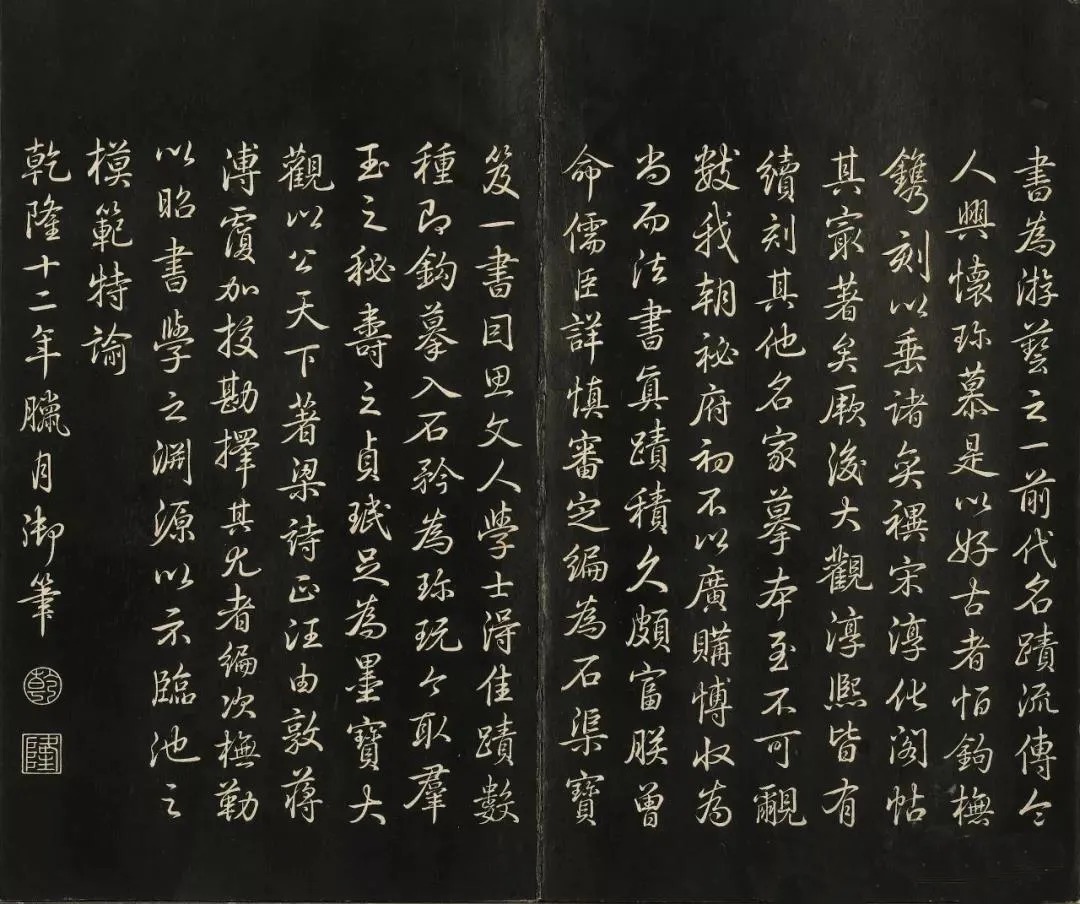 書為游藝之一前代名蹟流傳令
人興懷珎慕是以好古者恒鉤橅
鐫刻以垂諸奕禩宋淳化閣帖
其冣著矣厥後大觀淳熙皆有
續刻其他名家摹本至不可覼
數我朝祕府初不以廣購博收為
尚而法書真蹟積久頗富朕曾
命儒臣詳慎審定編為石渠寶
笈一書因思文人學士得佳蹟數
種即鉤摹入石矜為珎玩今取羣
玉之秘壽之貞珉足為墨寶大
觀以公天下著梁詩正汪由敦蔣
溥覆加校勘擇其尤者編次橅勒
以昭書學之淵源以示臨池之
模範特諭
乾隆十二年臘月御筆
乾
隆